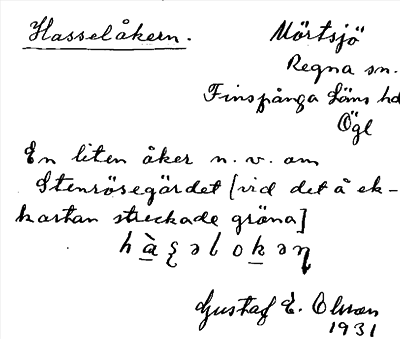 Hasselåkern.
Mörtsjö
Regna sn.
Finspånga läns hd
Ögl
En liten åker n.v. om
Stenrösegärdet [vid det å ek-
kartan streckade gröna]
Gustaf E. Olsson
1931